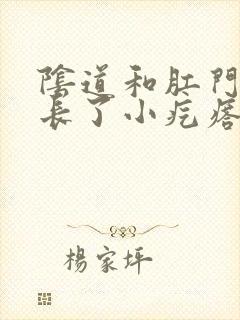 陰道和肛門
長了小疙瘩
楊家坪